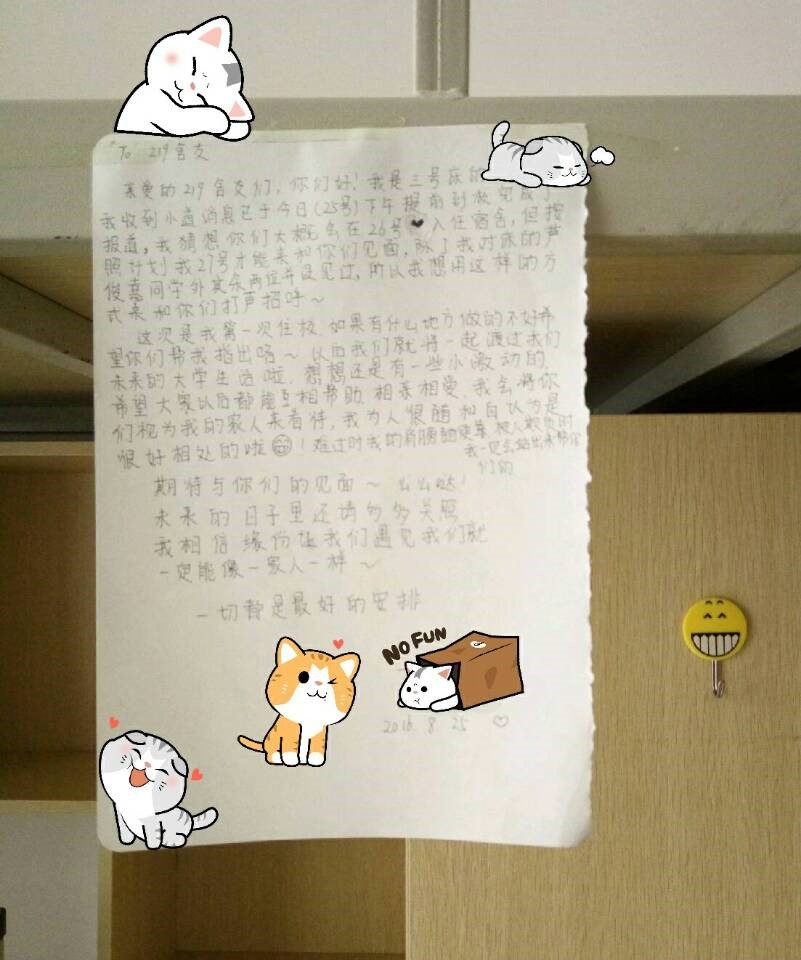 To 219舍友
亲爱的219舍友们，你们好！我是三号床的
我收到小道消息已于今日(25号)下午提前到校完成了
报道，我猜想你们大概会在26号入住宿舍，但按
照计划我27号才能来和你们见面，除了我对床的芦
俊嘉同学外其余两位并没见过，所以我想用这样的方
式来和你们打声招呼～
这次是我第一次住校，如果有什么地方做的不好希
望你们帮我指出咯～以后我们就将一起渡过我们
未来的大学生活啦，想想还是有一些小激动的，
希望大家以后都能互相帮助，相亲相爱，我会将你
们视为我的家人来看待，我为人很随和自认为是
很好相处的啦！难过时我的肩膀随便靠，被人欺负时
我一定会站出来帮你
们的
期待与你们的见面～么么哒！
未来的日子里还请多多关照
我相信缘份让我们遇见我们就
一定能像一家人一样～
一切都是最好的安排
NO FUN
2016.8.25